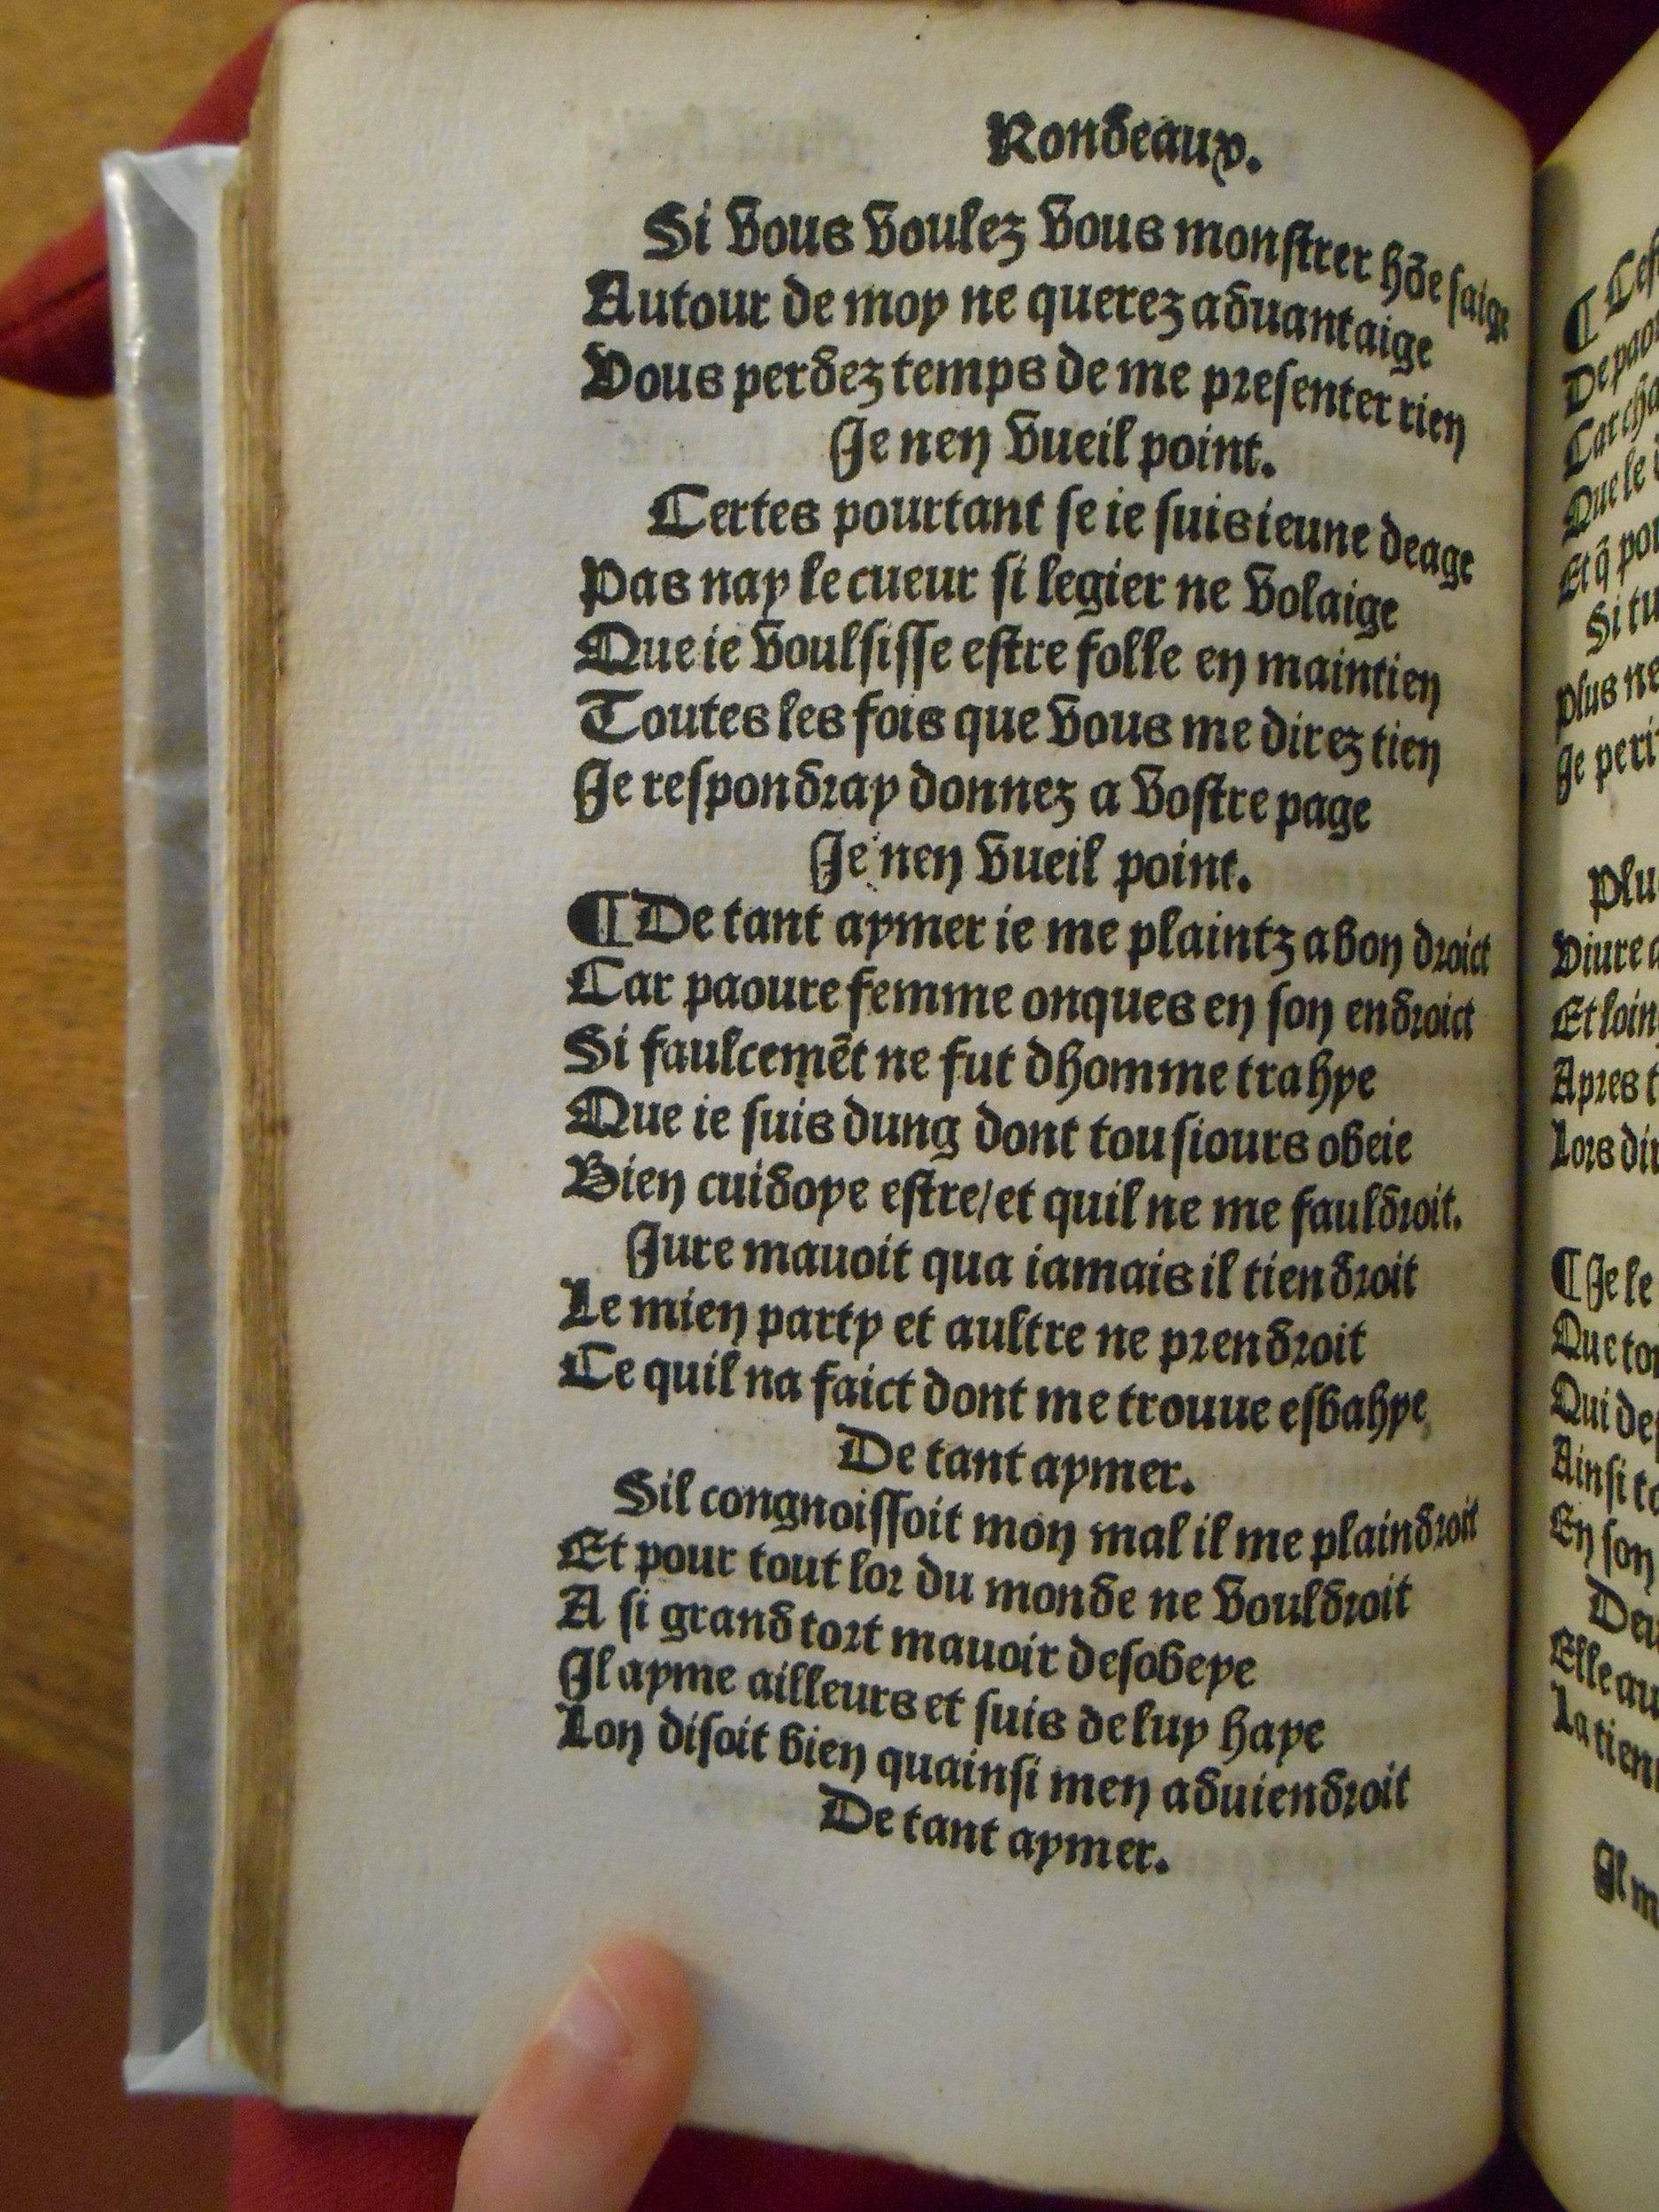 Rondeaux.
Si vous voulez vous monstrer hõe saige
Autour de moy ne querez aduantaige
Vous perdez temps de me presenter rien
Je nen vueil point.
Certes pourtant se ie suis ieune deage
Pas nay le cueur si legier ne volaige
Que ie voulsisse estre folle en maintien
Toutes les fois que vous me direz tien
Je respondray donnez a vostre page
Je nen vueil point.
¶ De tant aymer ie me plaintz a bon droict
Car paoure femme onques en son endroict
Si faulcemẽt ne fut dhomme trahye
Que ie suis dung dont tousiours obeie
Bien cuidoye estre/et quil ne me fauldroit.
Jure mauoit qua iamais il tiendroit
Le mien party et aultre ne prendroit
Ce quil na faict dont me trouue esbahye
De tant aymer.
Sil congnoissoit mon mal il me plaindroit
Et pour tout lor du monde ne vouldroit
A si grand tort mauoir desobeye
Il ayme ailleurs et suis de luy haye
Lon disoit bien quainsi men aduiendroit
De tant aymer.
¶ Cest
De paou
Car cha
Que le
Et q̃ pou
Si tu
Plus ne
Je peri
Plu
Viure a
Et loin
Apres t
Lors dir
¶ Je le
Que to
Qui de
Ainsi to
En son
Elle au
La tien
Il m